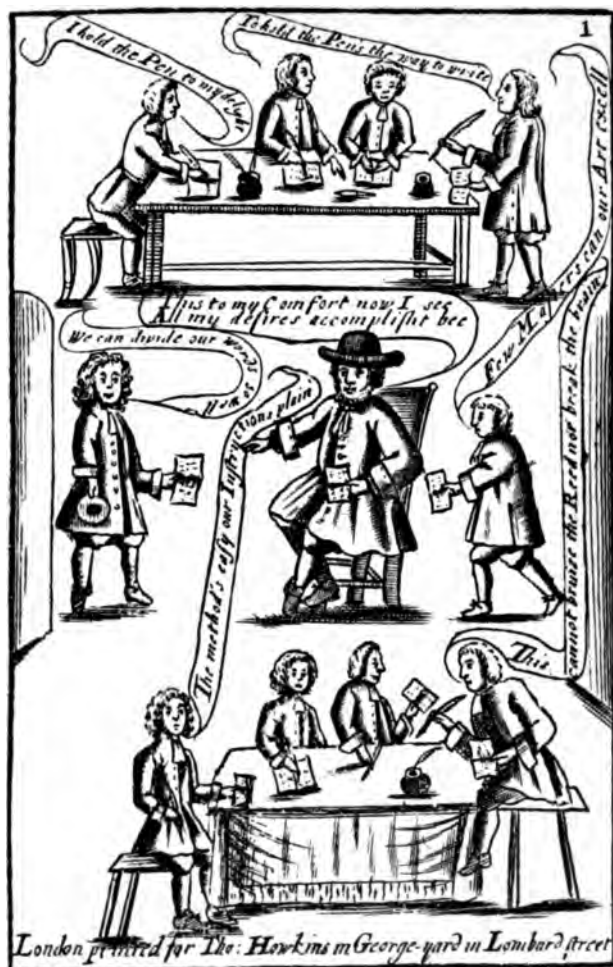 1
I hold the Pen to my delight
To hold the Pen's the way to write
This to my Comfort now I see
All my desires accomplisht bee
We can divide our words so well
Few Masters can our Art excell
The method's easy our Instructions plain
This cannot bruise the Reed nor break the brain
London printed for Tho: Howkins in George-yard in Lombard street